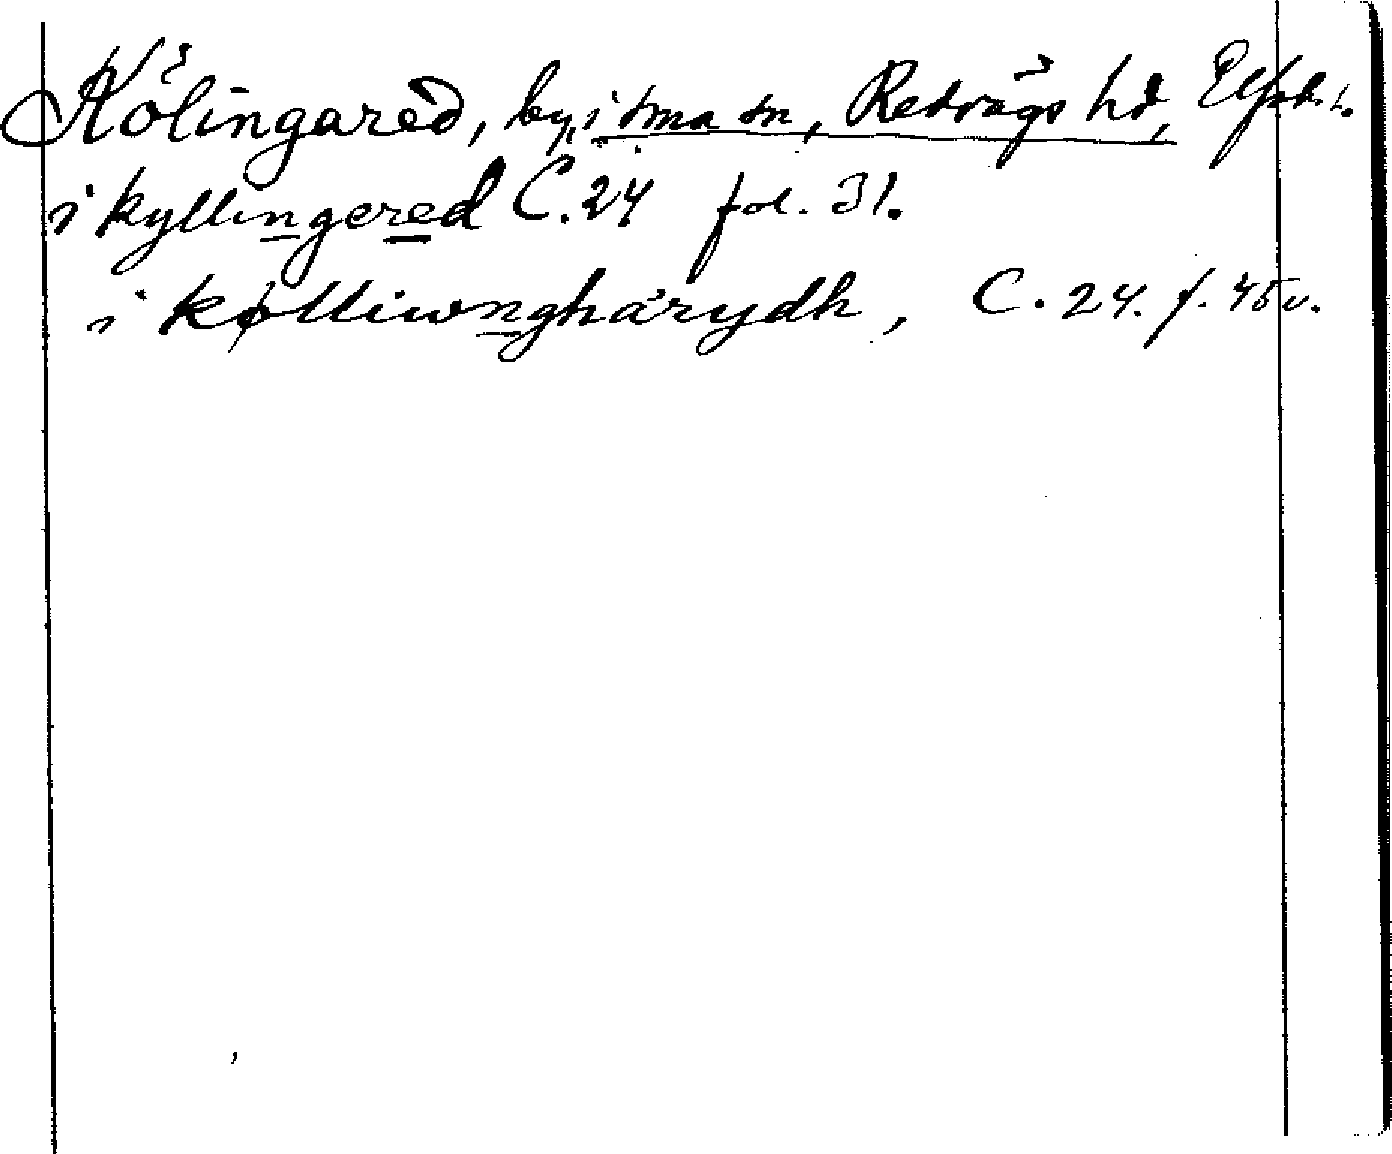 Kölingared, by, i sma sn, Redvägs hd, Elfsb. l.
i kyllingered C. 24 fol. 31.
i kølliwnghärydh, C. 24. f. 45 v.